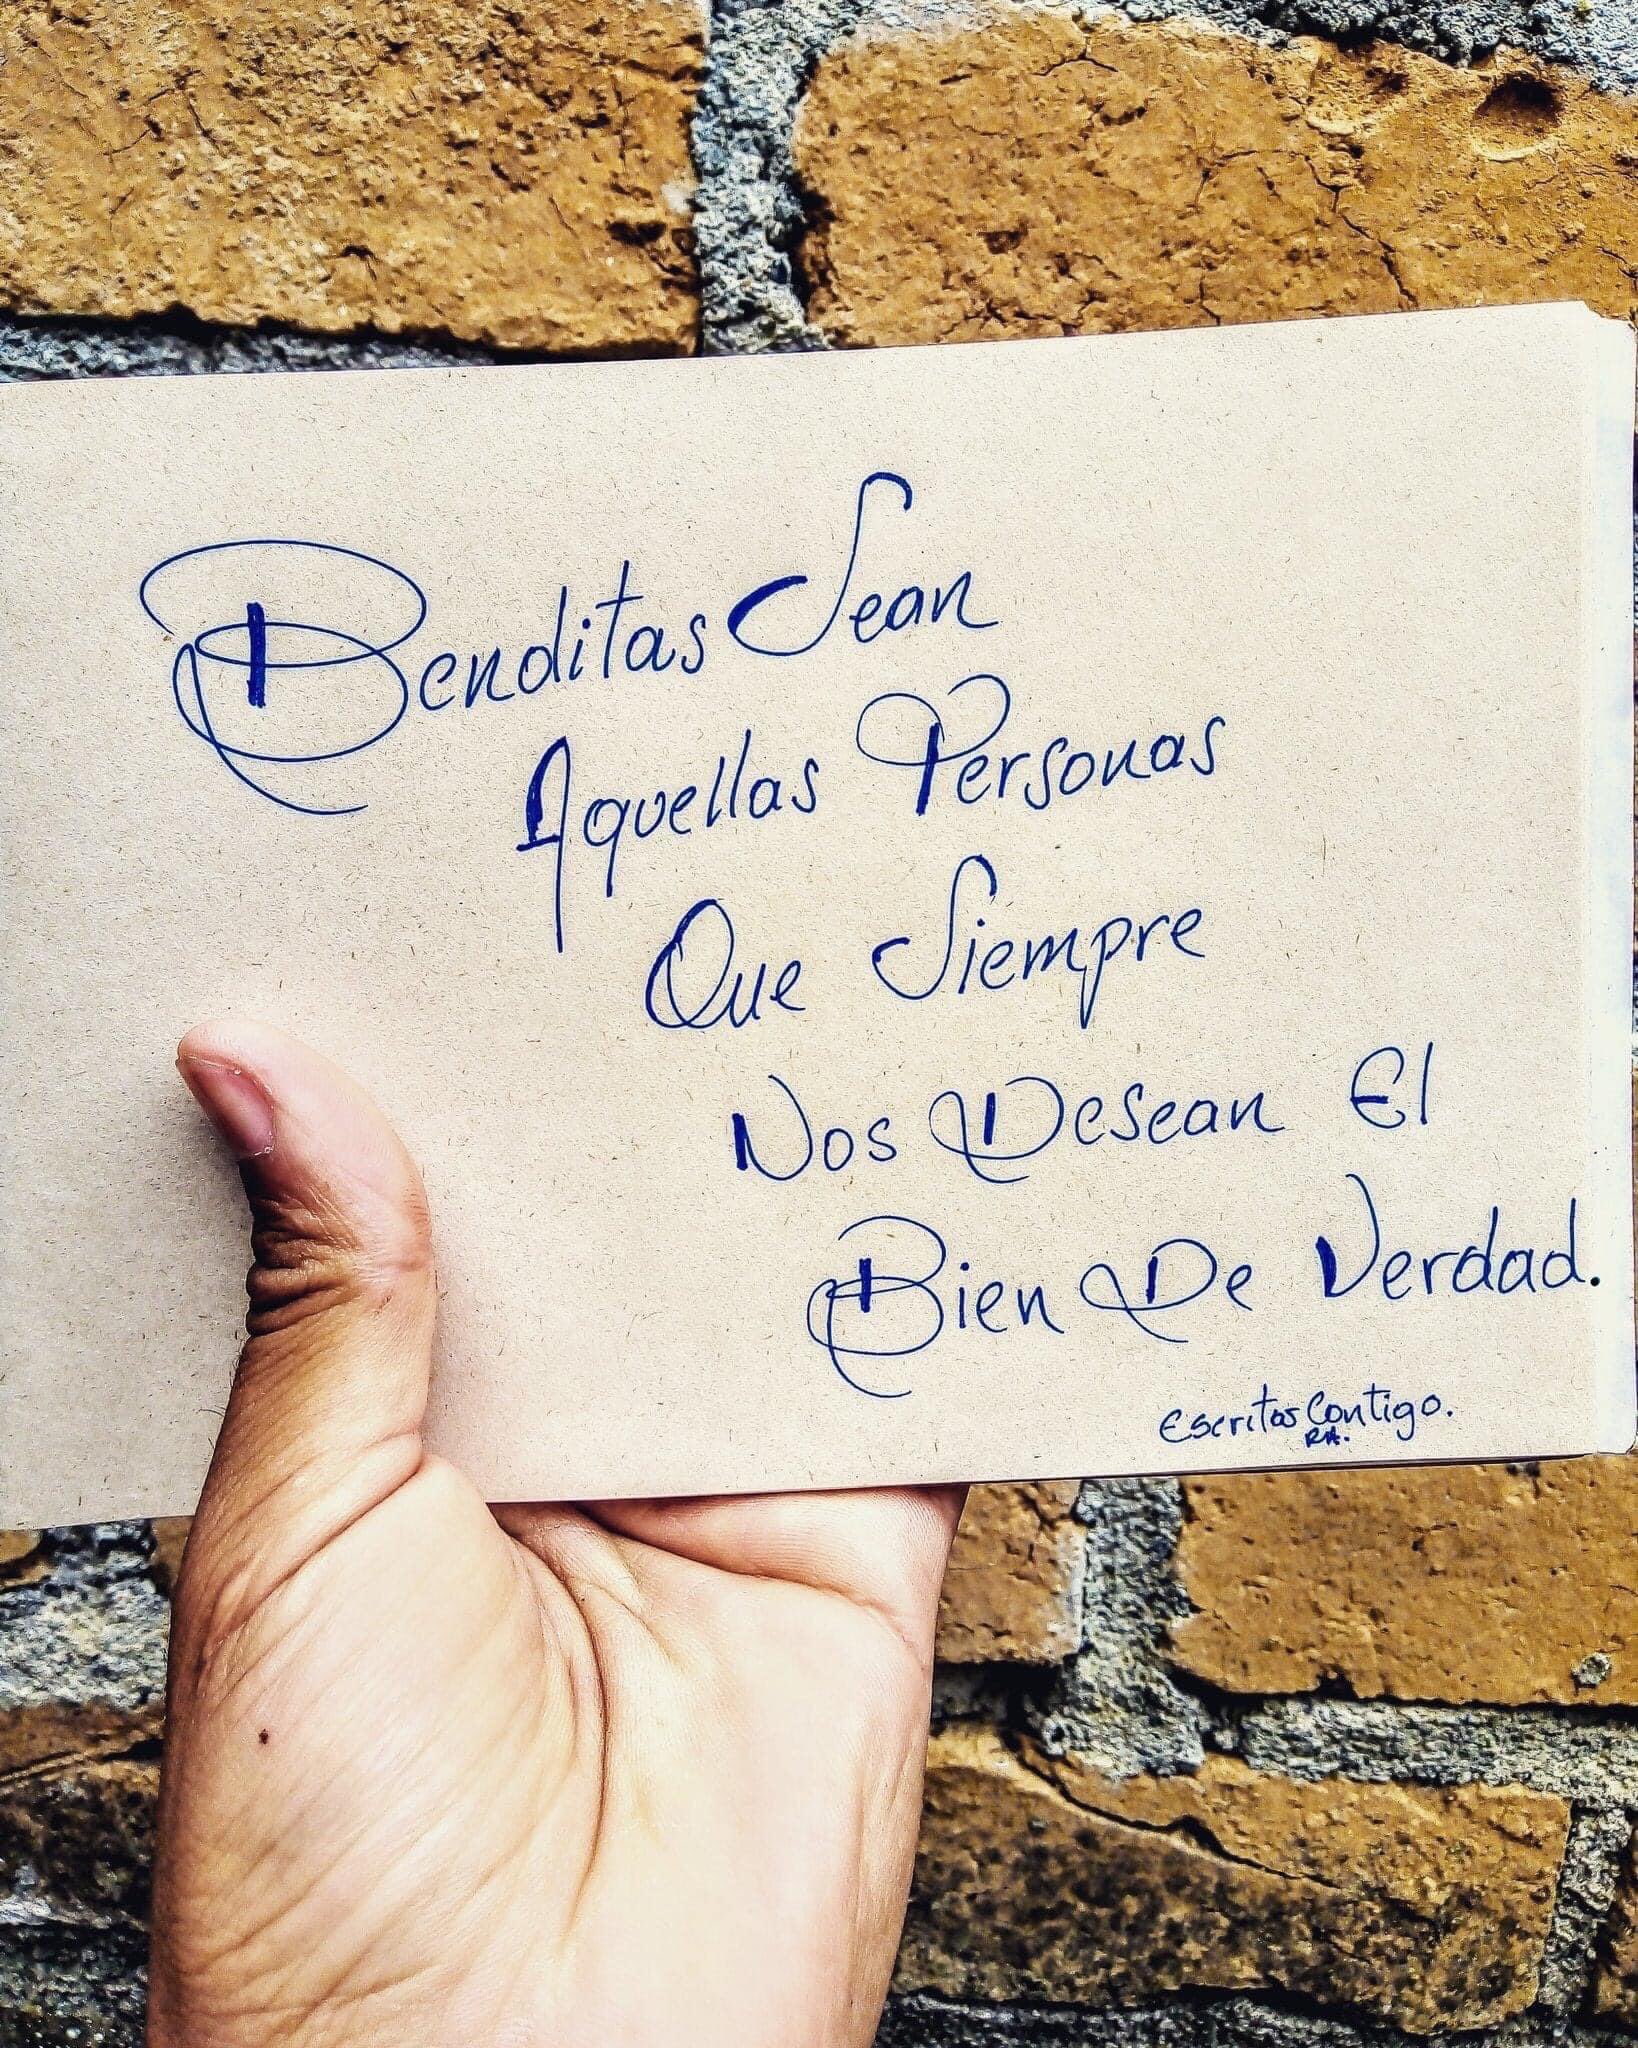 Benditas Sean
Aquellas Personas
Que Siempre
Nos Desean El
Bien De Verdad.
Escritos Contigo.
RA.